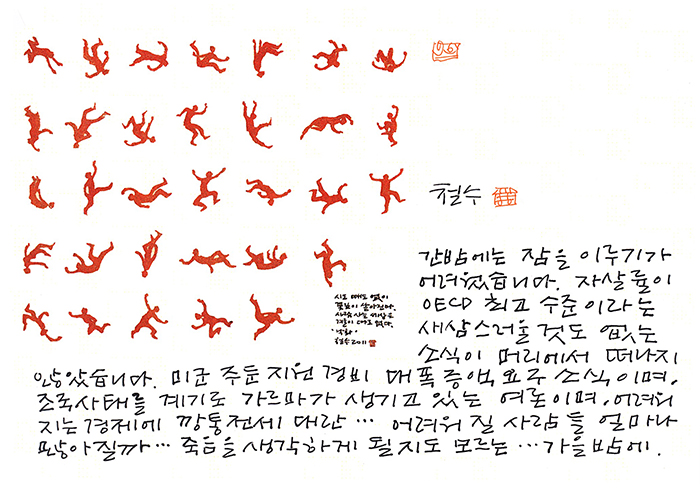 철수
간밤에는 잠을 이루기가
어려웠습니다. 자살률이
OECD 최고 수준이라는
새삼스러울 것도 없는
소식이 머리에서 떠나지
않았습니다. 미군 주둔 지원 경비 대폭 증액 요구 소식이며,
조국사태를 계기로 가르마가 생기고 있는 여론이며, 어려워
지는 경제에 깡통전세 대란 … 어려워 질 사람들 얼마나
많아질까… 죽음을 생각하게 될지도 모르는 … 가을밤에.
시도 때도 없이
사람 사는 세상은
없다.
철수 2011